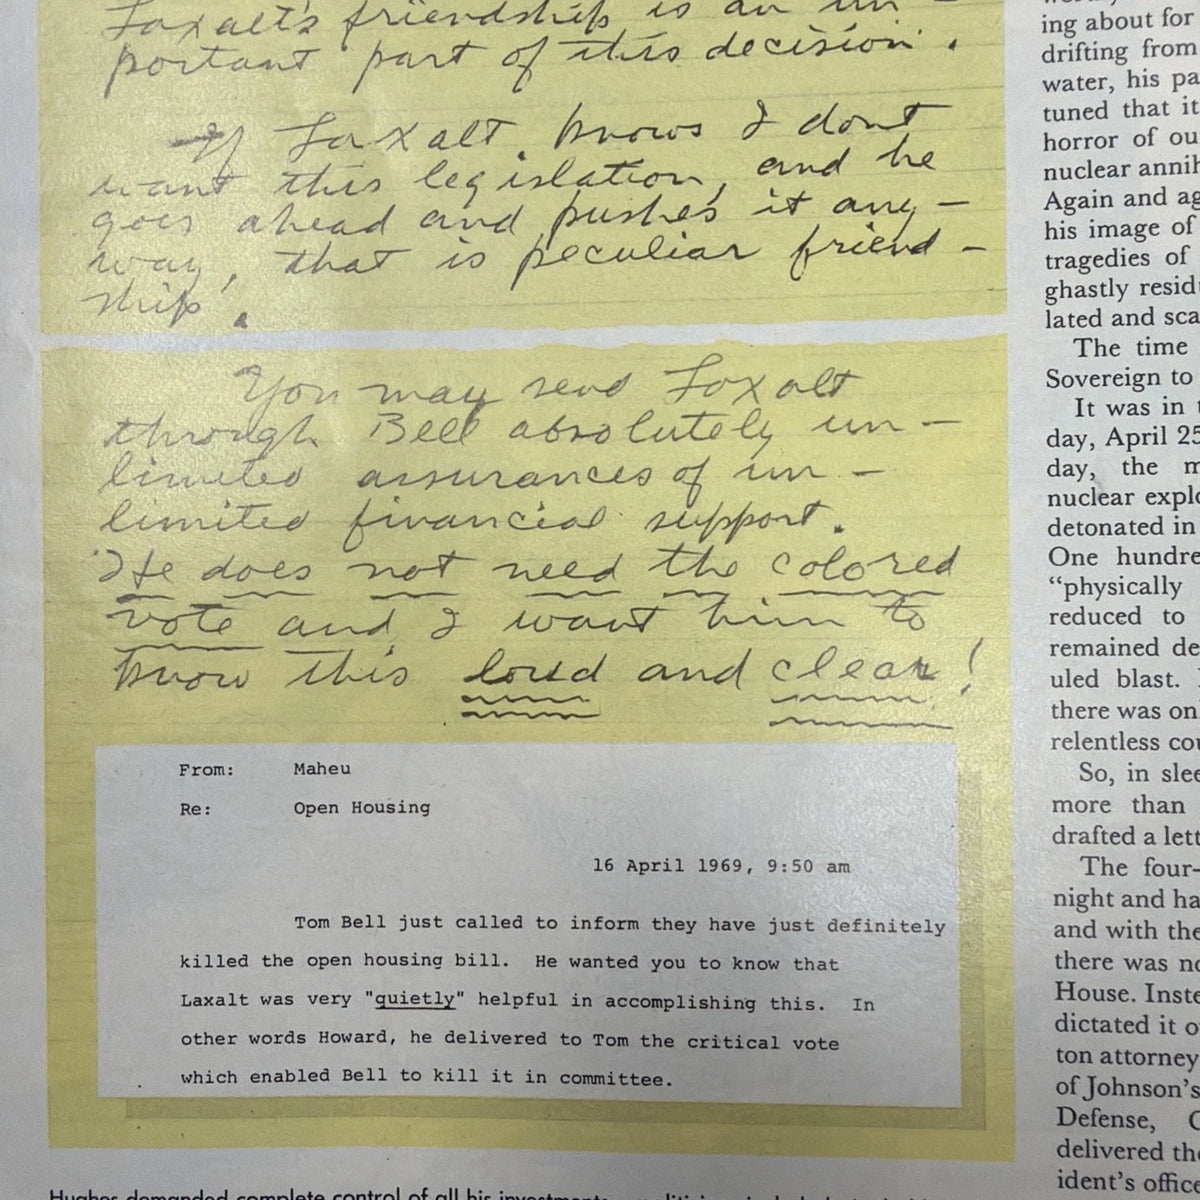 Laxalt's friendship is an im-
portant part of this decision.
If Laxalt knows I dont
want this legislation, and he
goes ahead and pushes it any-
way, that is peculiar friend-
ship.
You may send Laxalt
through Bell absolutely un-
limited assurances of un-
limited financial support.
He does not need the colored
vote and I want him to
know this loud and clear!
From: Maheu
Re: Open Housing
16 April 1969, 9:50 am
Tom Bell just called to inform they have just definitely
killed the open housing bill. He wanted you to know that
Laxalt was very "quietly" helpful in accomplishing this. In
other words Howard, he delivered to Tom the critical vote
which enabled Bell to kill it in committee.
Hughes demanded complete control of all his investments
ing about for
drifting from
water, his pa
tuned that it
horror of ou
nuclear annih
Again and ag
his image of
tragedies of
ghastly resid
lated and sca
The time
Sovereign to
It was in
day, April 25
day, the m
nuclear explo
detonated in
One hundre
“physically
reduced to
remained de
uled blast.
there was on
relentless cou
So, in slee
more than
drafted a lett
The four-
night and ha
and with the
there was no
House. Inste
dictated it o
ton attorney
of Johnson's
Defense, C
delivered the
ident's office